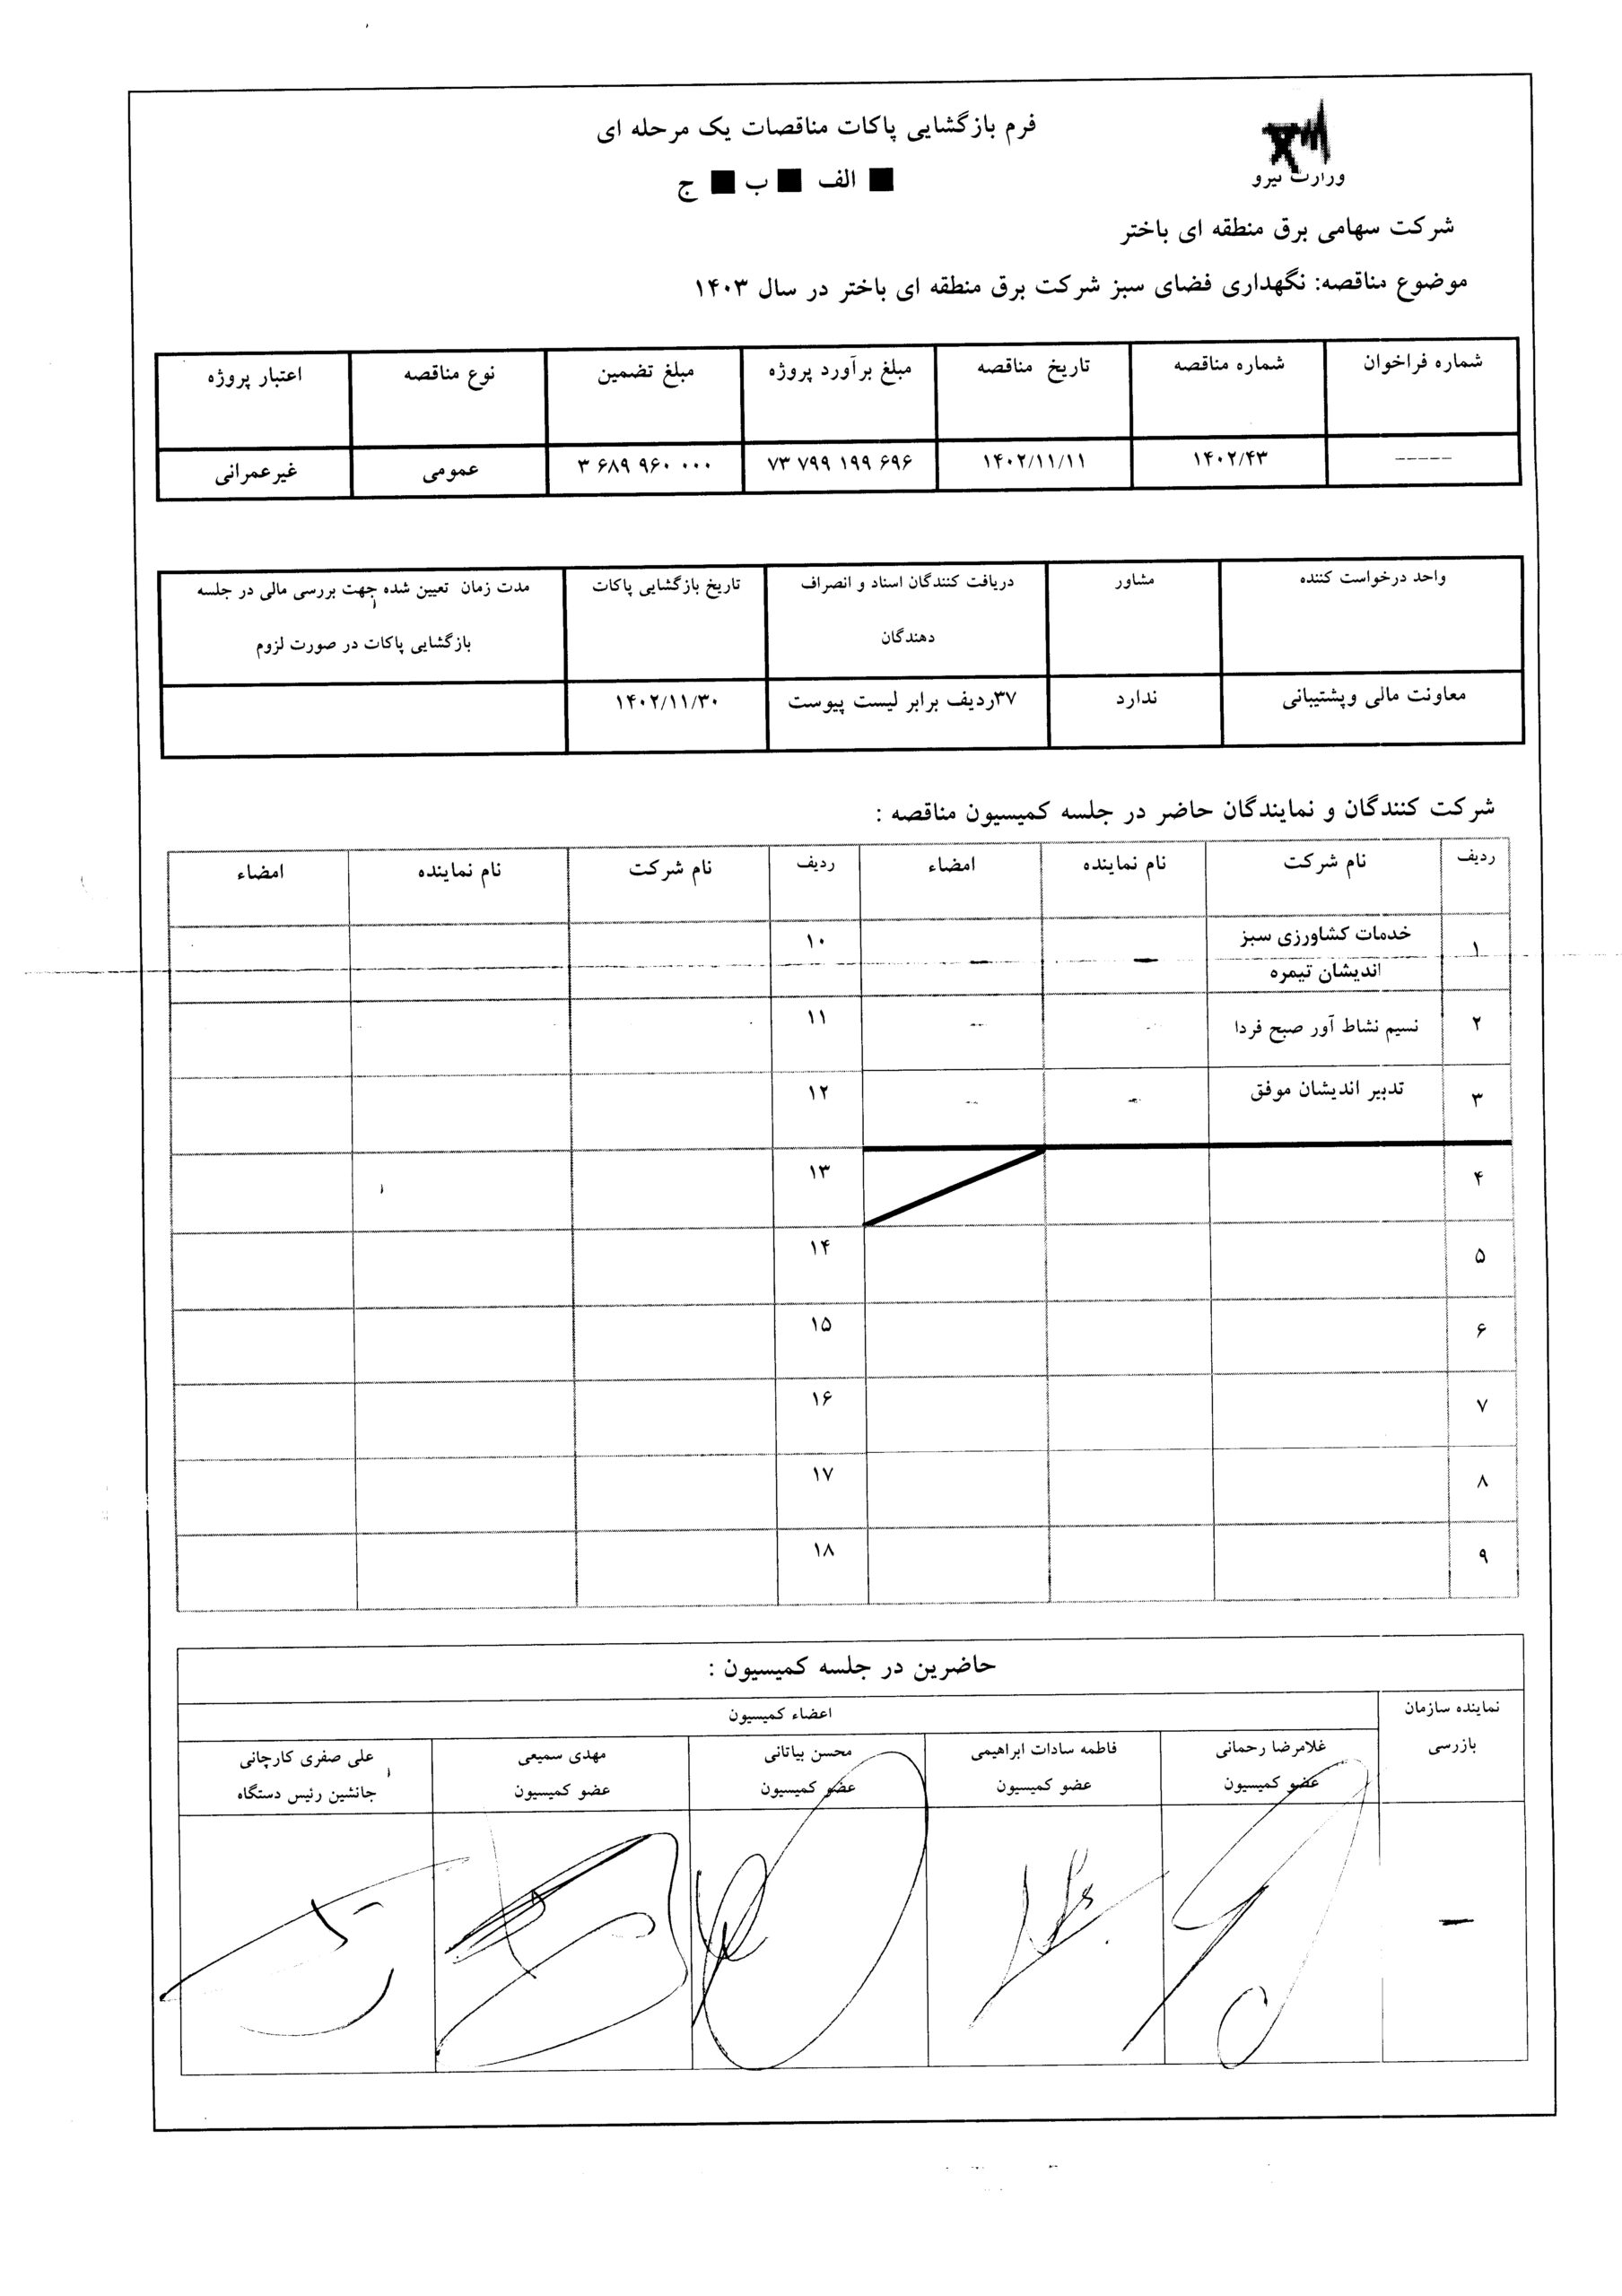 وزارت نیرو
فرم بازگشایی پاکات مناقصات یک مرحله ای
■ الف ■ ب ■ ج
شرکت سهامی برق منطقه ای باختر
موضوع مناقصه: نگهداری فضای سبز شرکت برق منطقه ای باختر در سال ۱۴۰۳
شماره فراخوان شماره مناقصه تاریخ مناقصه مبلغ برآورد پروژه مبلغ تضمین نوع مناقصه اعتبار پروژه
----- ۱۴۰۲/۴۳ ۱۴۰۲/۱۱/۱۱ ۷۳ ۷۹۹ ۱۹۹ ۶۹۶ ۳ ۶۸۹ ۹۶۰ ۰۰۰ عمومی غیرعمرانی
واحد درخواست کننده مشاور دریافت کنندگان اسناد و انصراف تاریخ بازگشایی پاکات مدت زمان تعیین شده جهت بررسی مالی در جلسه
دهندگان بازگشایی پاکات در صورت لزوم
معاونت مالی وپشتیبانی ندارد ۳۷ردیف برابر لیست پیوست ۱۴۰۲/۱۱/۳۰
شرکت کنندگان و نمایندگان حاضر در جلسه کمیسیون مناقصه :
ردیف نام شرکت نام نماینده امضاء ردیف نام شرکت نام نماینده امضاء
۱ خدمات کشاورزی سبز - - ۱۰
اندیشان تیمره
۲ نسیم نشاط آور صبح فردا - - ۱۱
۳ تدبیر اندیشان موفق - - ۱۲
۴ ۱۳
۵ ۱۴
۶ ۱۵
۷ ۱۶
۸ ۱۷
۹ ۱۸
حاضرین در جلسه کمیسیون :
نماینده سازمان اعضاء کمیسیون
بازرسی غلامرضا رحمانی فاطمه سادات ابراهیمی محسن بیاتانی مهدی سمیعی علی صفری کارچانی
عضو کمیسیون عضو کمیسیون عضو کمیسیون عضو کمیسیون جانشین رئیس دستگاه
-